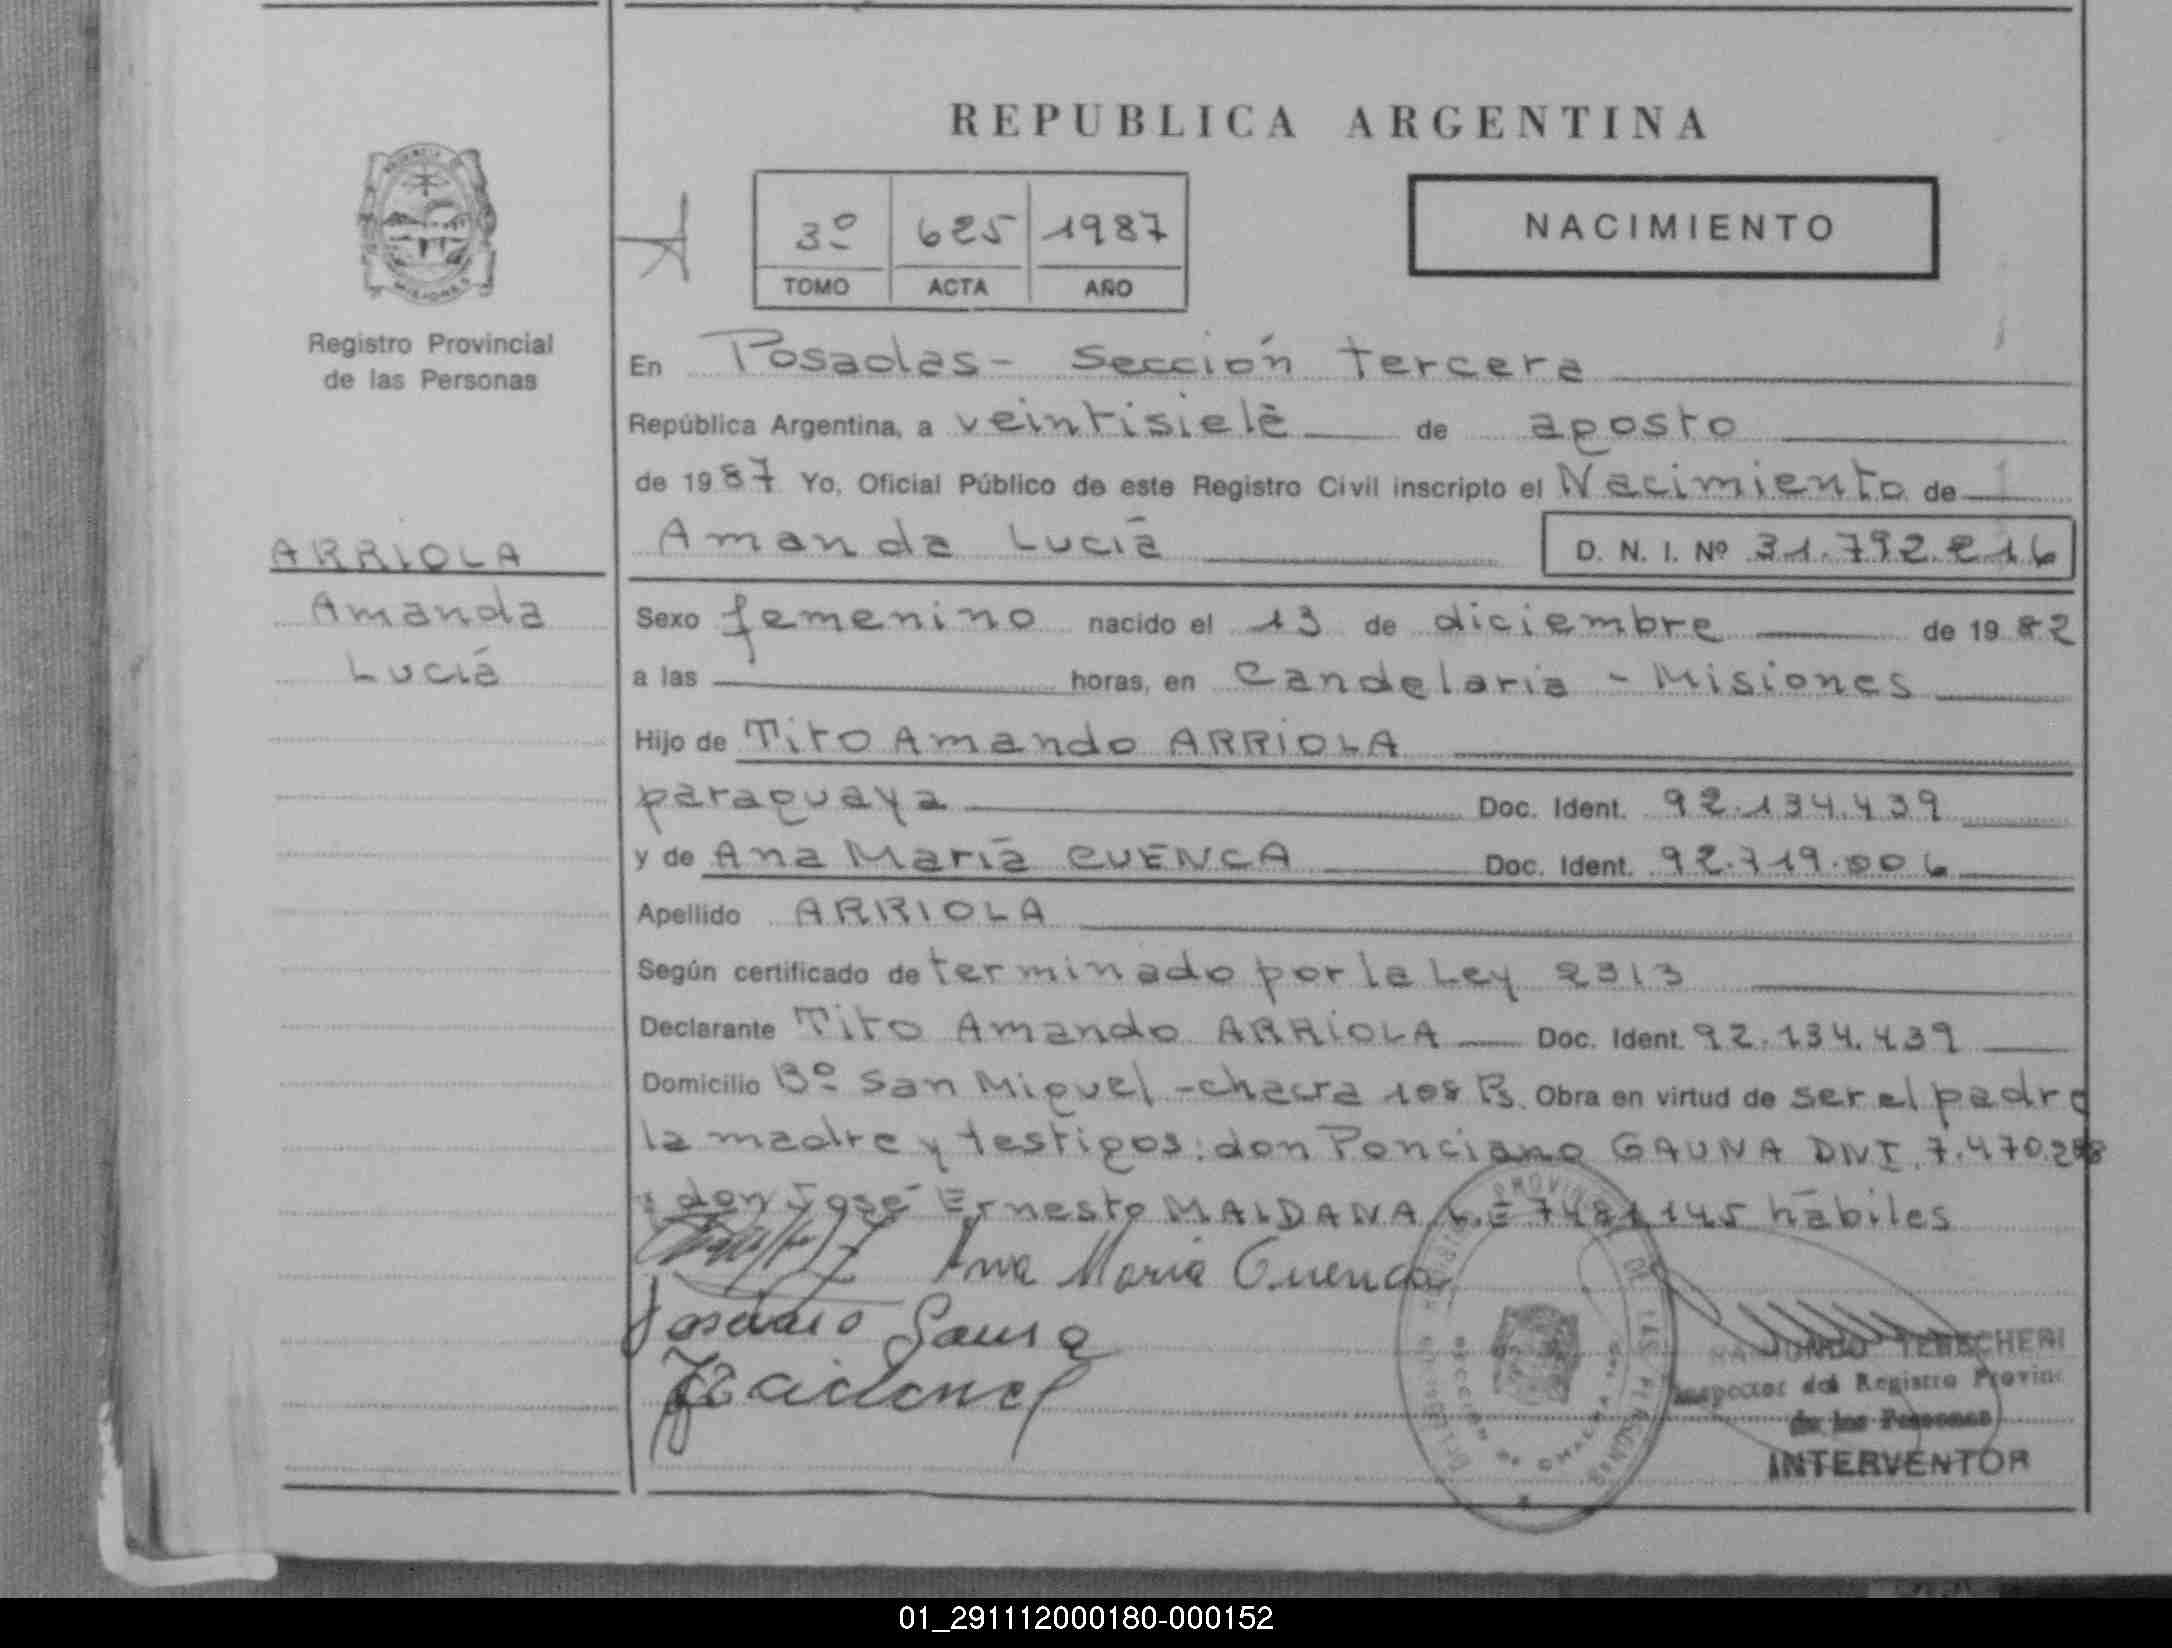 REPUBLICA ARGENTINA
3º 625 1987
TOMO ACTA AÑO
NACIMIENTO
MISIONES
Registro Provincial
de las Personas
En Posadas - Sección tercera
República Argentina, a veintisiete de agosto
de 1987 Yo, Oficial Público de este Registro Civil inscripto el Nacimiento de
Amanda Lucía D. N. I. Nº 31.792.216
ARRIOLA
Amanda
Lucía
Sexo femenino nacido el 13 de diciembre de 1982
a las horas, en Candelaria - Misiones
Hijo de Tito Amando ARRIOLA
paraguaya Doc. Ident. 92.134.439
y de Ana María CUENCA Doc. Ident. 92.719.006
Apellido ARRIOLA
Según certificado de terminado por la Ley 2313
Declarante Tito Amando ARRIOLA Doc. Ident. 92.134.439
Domicilio Bº San Miguel - chacra 108 Ps. Obra en virtud de ser el padre
la madre y testigos: don Ponciano GAUNA DNI 7.470.2
y don José Ernesto MAIDANA L.E 7481145 hábiles
Ana Maria Cuenca
Gauna
TERSCHERI
Inspector del Registro Provinc
de las Personas
INTERVENTOR
01_291112000180-000152